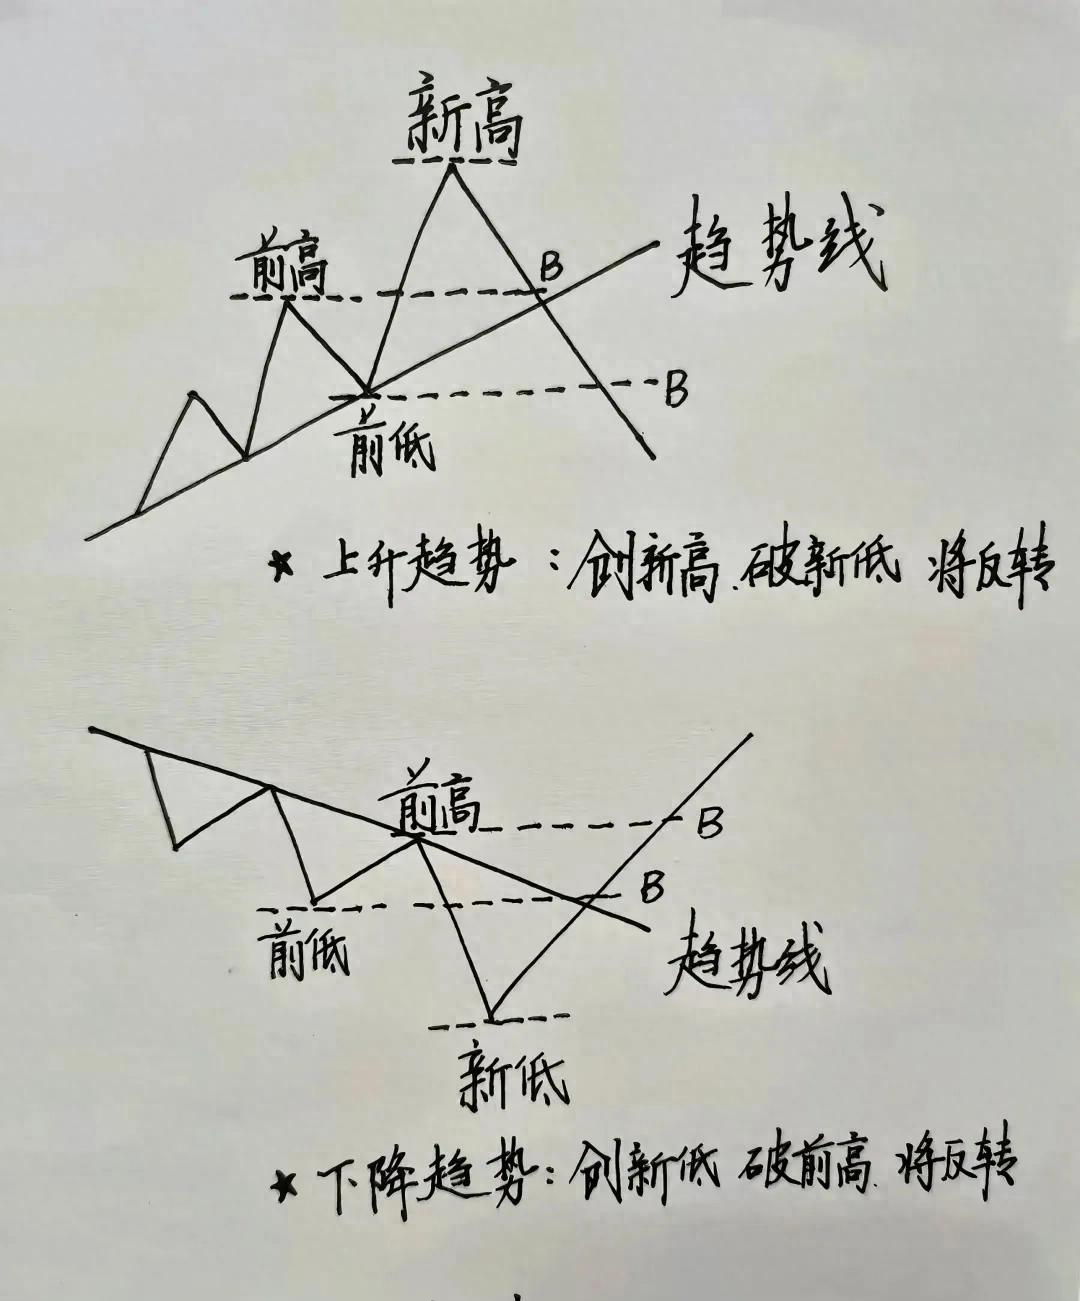 新高
前高
B
趋势线
B
前低
★ 上升趋势：创新高.破新低 将反转
前高
B
B
前低
趋势线
新低
★ 下降趋势：创新低 破前高.将反转